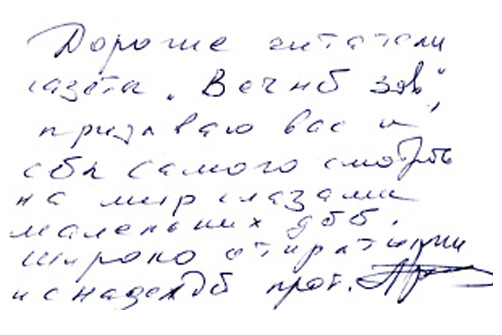 Дорогие читатели
газеты „Вечнб зов“,
призываю вас и
сбя самого смотреть
на мир глазами
маленьких дбб,
широко открытыми
и с надеждб прот.